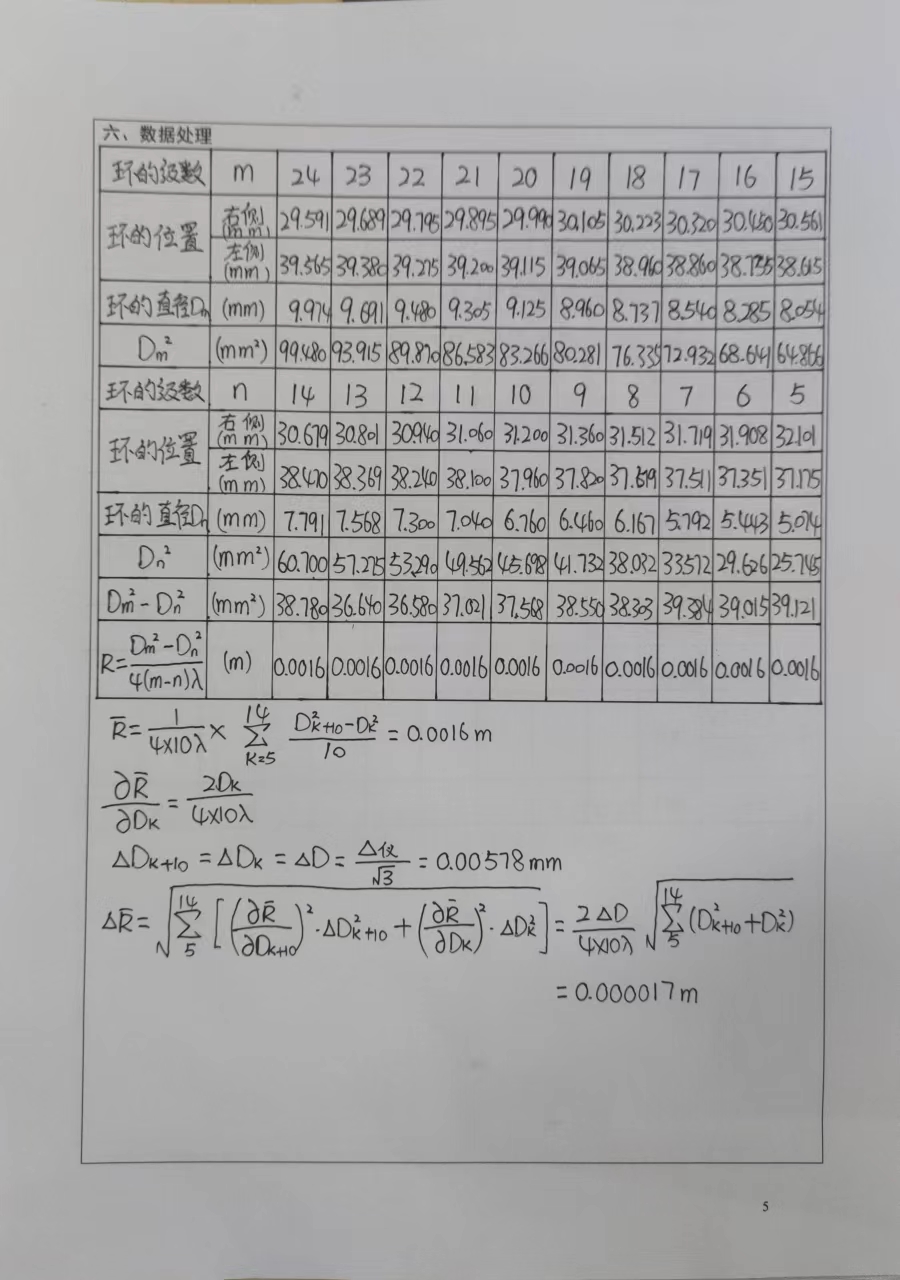 六、数据处理
环的级数 m 24 23 22 21 20 19 18 17 16 15
环的位置 右侧(mm) 29.591 29.689 29.795 29.895 29.990 30.105 30.223 30.320 30.450 30.561
左侧(mm) 39.565 39.380 39.275 39.200 39.115 39.065 38.960 38.860 38.735 38.615
环的直径Dm (mm) 9.974 9.691 9.480 9.305 9.125 8.960 8.737 8.540 8.285 8.054
Dm² (mm²) 99.480 93.915 89.870 86.583 83.266 80.281 76.335 72.932 68.641 64.866
环的级数 n 14 13 12 11 10 9 8 7 6 5
环的位置 右侧(mm) 30.679 30.801 30.940 31.060 31.200 31.360 31.512 31.719 31.908 32.101
左侧(mm) 38.470 38.369 38.240 38.100 37.960 37.820 37.679 37.511 37.351 37.175
环的直径Dn (mm) 7.791 7.568 7.300 7.040 6.760 6.460 6.167 5.792 5.443 5.074
Dn² (mm²) 60.700 57.275 53.290 49.562 45.698 41.732 38.032 33.572 29.626 25.745
Dm²-Dn² (mm²) 38.780 36.640 36.580 37.021 37.568 38.550 38.303 39.384 39.015 39.121
R=Dm²-Dn²/4(m-n)λ (m) 0.0016 0.0016 0.0016 0.0016 0.0016 0.0016 0.0016 0.0016 0.0016 0.0016
R̄=1/4×10λ × 14∑K=5 D²k+10-Dk²/10 = 0.0016 m
∂R̄/∂Dk = 2Dk/4×10λ
ΔDk+10 = ΔDk = ΔD = Δ仪/√3 = 0.00578mm
ΔR̄=√14∑5[(∂R̄/∂Dk+10)²·ΔD²k+10+(∂R̄/∂Dk)²·ΔDk²] = 2ΔD/4×10λ √14∑5(D²k+10+Dk²)
=0.000017m
5